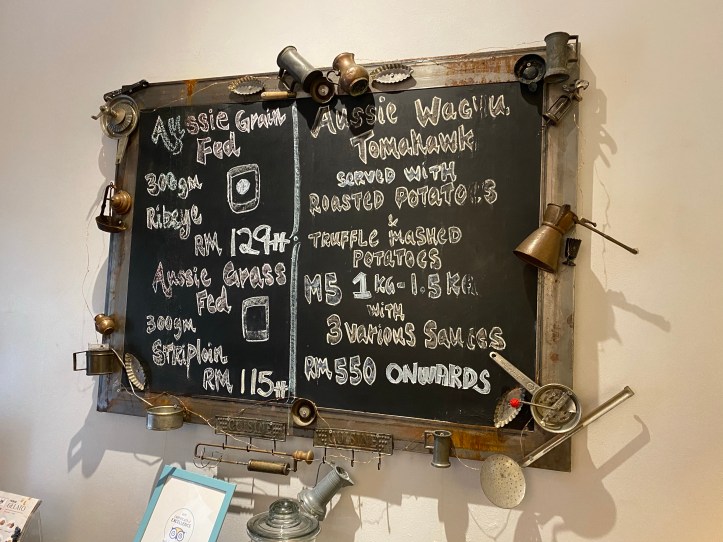 Aussie Grain
Fed
300gm
Ribeye
RM 129++
Aussie Grass
Fed
300gm
Striploin
RM 115++
Aussie Wagyu
Tomahawk
SERVED WITH
ROASTED POTATOES
&
TRUFFLE MASHED
POTATOES
M5 1KG-1.5KG
WITH
3 VARIOUS SAUCES
RM 550 ONWARDS
CUISINE
GELATO